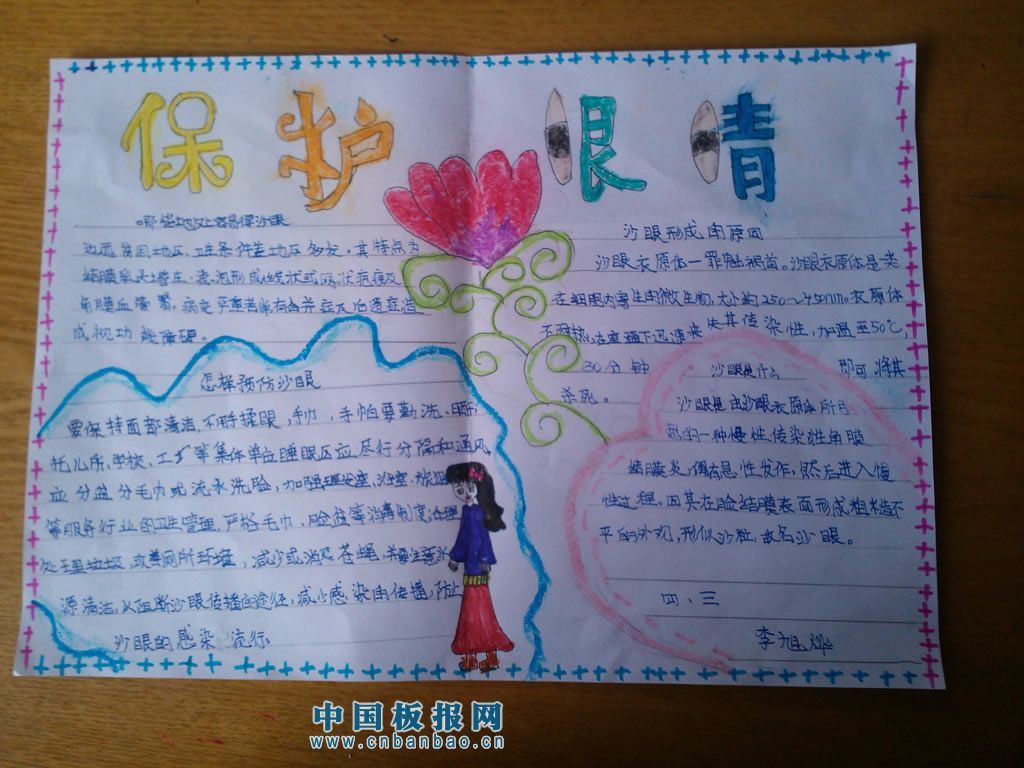 保护眼睛
哪些地处容易得沙眼
边远贫困地区、卫生条件差地区多发,其特点为
结膜乳头增生、滤泡形成线状或网状疤痕及
角膜血管翳。病变严重者常有合并症及后遗症造
成视功能障碍。
怎样预防沙眼
要保持面部清洁,不用手揉眼,手巾,手帕要勤洗、晒
托儿所、学校、工厂等集体单位睡眠区应尽行分隔和通风
应分盆分毛巾或流水洗脸,加强理发室、浴室、旅馆
等服务行业的卫生管理,严格毛巾,脸盆等消毒制度
处理垃圾,改善厕所环境,减少或消灭苍蝇,并注意水
源清洁,以阻断沙眼传播的途径,减少感染的传播,防止
沙眼的感染 流行。
沙眼形成的原因
沙眼衣原体一罪魁祸首。沙眼衣原体是类
在细胞内寄生的微生物,大小约250~450nm。衣原体
不耐热,在室温下迅速丧失其传染性,加温至50℃,
30分钟 即可将其
杀死。
沙眼是什么
沙眼是由沙眼衣原体所引
起的一种慢性传染性角膜
结膜炎,偶有急性发作,然后进入慢
性过程。因其在脸结膜表面形成粗糙不
平的外观,形似沙粒,故名沙眼。
四、三
李旭烨
中国板报网
www.cnbanbao.cn